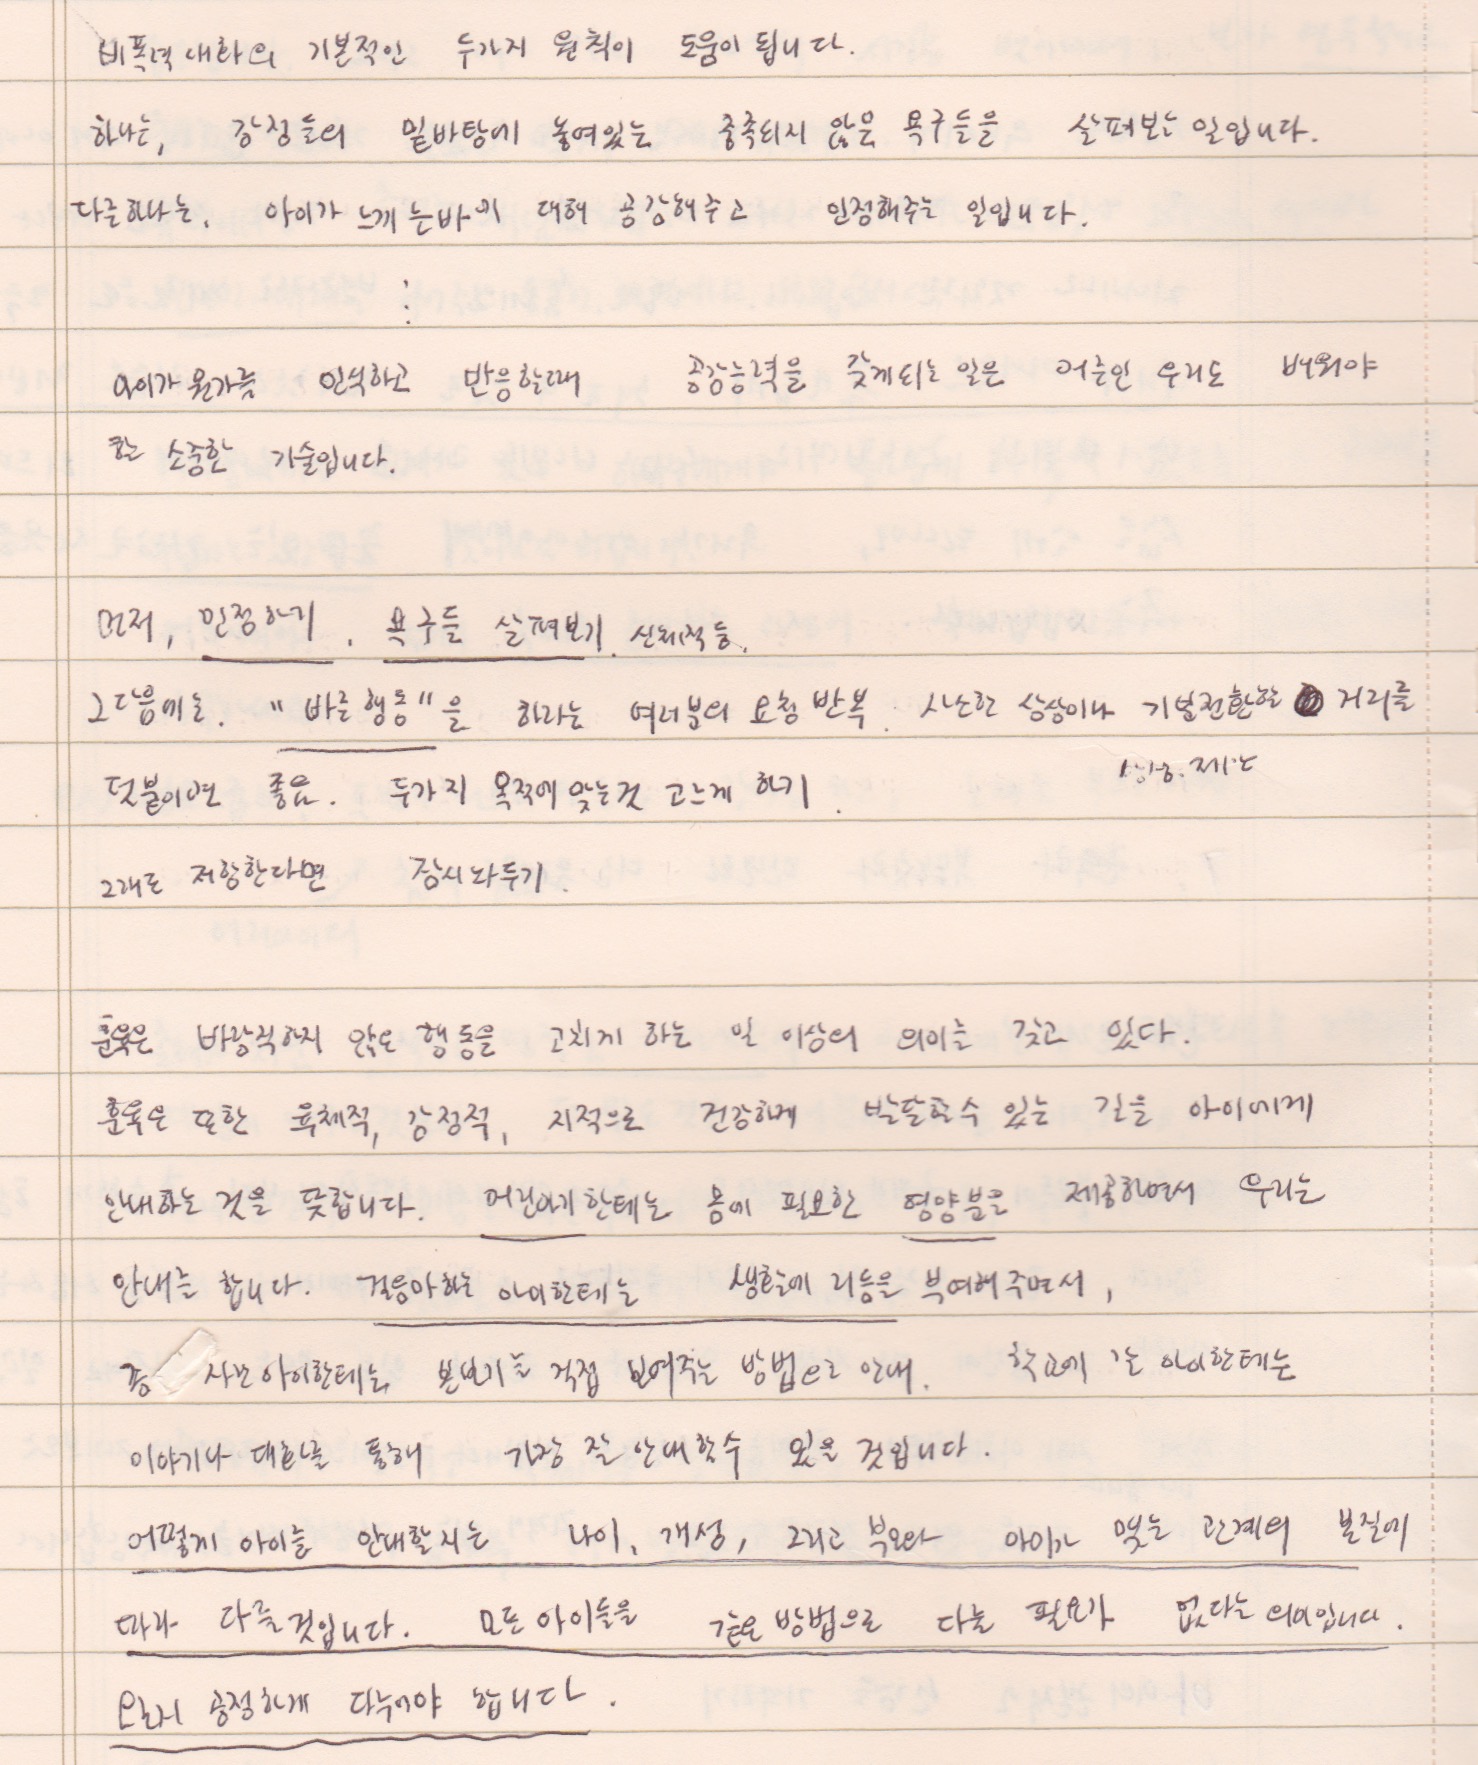 비폭력대화의 기본적인 두가지 원칙이 도움이 됩니다.
하나는, 감정들의 밑바탕에 놓여있는 충족되지 않은 욕구들을 살펴보는 일입니다.
다른하나는, 아이가 느끼는바에 대해 공감해주고 인정해주는 일입니다.
⋮
아이가 뭔가를 인식하고 반응할때 공감능력을 갖게되는 일은 어른인 우리도 배워야
할 소중한 기술입니다.
먼저, 인정하기. 욕구들 살펴보기. 신체적 등.
그다음에는. "바른행동"을 하라는 여러분의 요청 반복. 사소한 상상이나 기분전환할 거리를
상황. 제안
덧붙이면 좋음. 두가지 목적에 맞는것 고르게 하기.
그래도 저항한다면 잠시놔두기.
훈육은 바람직하지 않은 행동을 고치게 하는 일 이상의 의미를 갖고 있다.
훈육은 또한 육체적, 감정적, 지적으로 건강하게 발달할수 있는 길을 아이에게
안내하는 것을 뜻합니다. 어린아기한테는 몸에 필요한 영양분을 제공하면서 우리는
안내를 합니다. 걸음마하는 아이한테는 생활에 리듬을 부여해주면서,
아이한테는 본보기를 직접 보여주는 방법으로 안내. 학교에 가는 아이한테는
이야기나 대화를 통해 가장 잘 안내할수 있을 것입니다.
어떻게 아이를 안내할지는 나이, 개성, 그리고 부모와 아이가 맺는 관계의 본질에
따라 다를것입니다. 모든아이들을 같은 방법으로 다룰 필요가 없다는 의미입니다.
공정하게 다루어야 합니다.